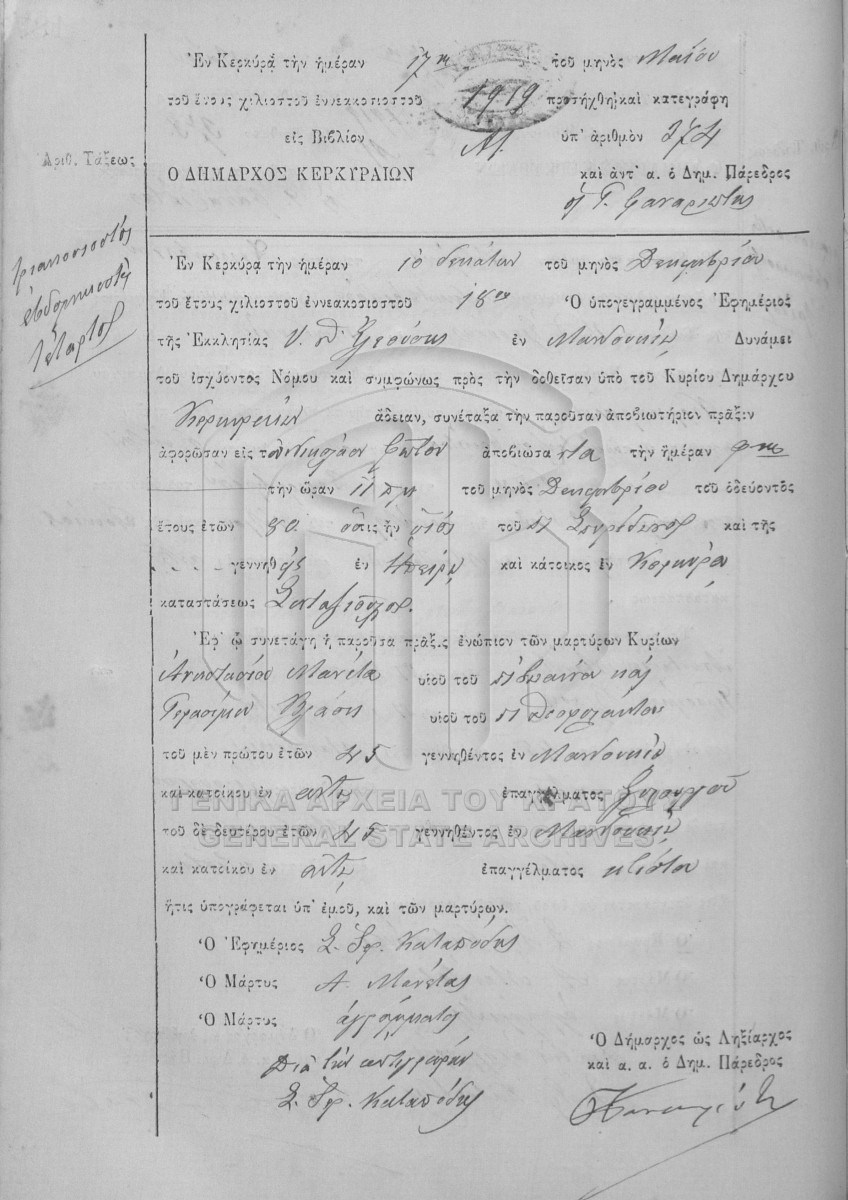 Ἐν Κερκύρᾳ τὴν ἡμέραν 17ην τοῦ μηνὸς Μαΐου
τοῦ ἔτους χιλιοστοῦ ἐννεακοσιοστοῦ 1919 προσήχθη καὶ κατεγράφη
εἰς Βιβλίον ὑπ' ἀριθμὸν 374
Ἀριθ. Τάξεως
Ο ΔΗΜΑΡΧΟΣ ΚΕΡΚΥΡΑΙΩΝ καὶ ἀντ' α. ὁ Δημ. Πάρεδρος
τριακοσιοστὸς
ἑβδομηκοστὸς
τέταρτος
Ἐν Κερκύρᾳ τὴν ἡμέραν 10 δεκάτην τοῦ μηνὸς Δεκεμβρίου
τοῦ ἔτους χιλιοστοῦ ἐννεακοσιοστοῦ 18ου Ὁ ὑπογεγραμμένος Ἐφημέριος
τῆς Ἐκκλησίας Υ. Θ. Ἐλεούσης ἐν Μανδουκίῳ Δυνάμει
τοῦ ἰσχύοντος Νόμου καὶ συμφώνως πρὸς τὴν δοθεῖσαν ὑπὸ τοῦ Κυρίου Δημάρχου
Κερκυραίων ἄδειαν, συνέταξα τὴν παροῦσαν ἀποβιωτήριον πρᾶξιν
ἀφορῶσαν εἰς τὸν Νικόλαον Φῶτον ἀποβιώσαντα τὴν ἡμέραν
τὴν ὥραν 11 πμ τοῦ μηνὸς Δεκεμβρίου τοῦ ὁδεύοντος
ἔτους ἐτῶν 80 ὅστις ἦν υἱὸς τοῦ Σπυρίδωνος καὶ τῆς
γεννηθεὶς ἐν Ἠπείρῳ καὶ κάτοικος ἐν Κερκύρᾳ
καταστάσεως
Ἐφ' ᾧ συνετάγη ἡ παροῦσα πρᾶξις ἐνώπιον τῶν μαρτύρων Κυρίων
Ἀναστασίου Μανέτα υἱοῦ τοῦ καὶ
Γερασίμου Βλάση υἱοῦ τοῦ Θεοφυλάκτου
τοῦ μὲν πρώτου ἐτῶν 45 γεννηθέντος ἐν Μανδουκίῳ
καὶ κατοίκου ἐν αὐτῷ ἐπαγγέλματος ξυλουργοῦ
ΓΕΝΙΚΑ ΑΡΧΕΙΑ ΤΟΥ ΚΡΑΤΟΥΣ
τοῦ δὲ δευτέρου ἐτῶν 45 γεννηθέντος ἐν Μανδουκίῳ
GENERAL STATE ARCHIVES
καὶ κατοίκου ἐν αὐτῷ ἐπαγγέλματος κτίστου
ἥτις ὑπογράφεται ὑπ' ἐμοῦ, καὶ τῶν μαρτύρων.
Ὁ Ἐφημέριος Σ. Σφ. Καταπόδης
Ὁ Μάρτυς Α. Μανέτας
Ὁ Μάρτυς ἀγράμματος
Διὰ τὴν ἀντιγραφὴν
Σ. Σφ. Καταπόδης
Ὁ Δήμαρχος ὡς Ληξίαρχος
καὶ α. α. ὁ Δημ. Πάρεδρος